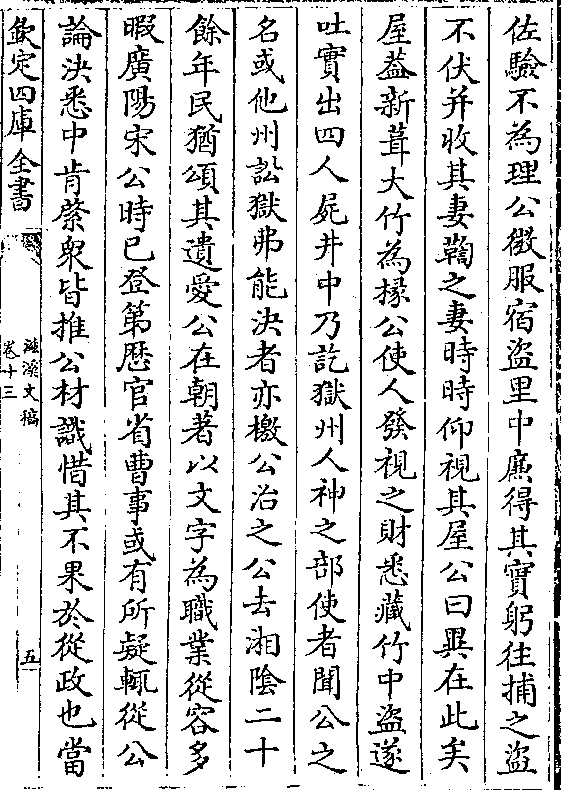 佐驗不為理公微服宿盜里中㢘得其實躬往捕之盜
不伏并收其妻鞫之妻時時仰視其屋公曰異在此矣
屋葢新葺大竹為椽公使人發視之財悉藏竹中盜遂
吐實出四人屍井中乃訖獄州人神之部使者聞公之
名或他州訟獄弗能決者亦檄公治之公去湘陰二十
餘年民猶頌其遺愛公在朝著以文字為職業從容多
暇廣陽宋公時已登第歴官省曹事或有所疑輒從公
論決悉中肯綮衆皆推公材識惜其不果於從政也當
欽定四庫全書
滋溪文稿
卷十三
五